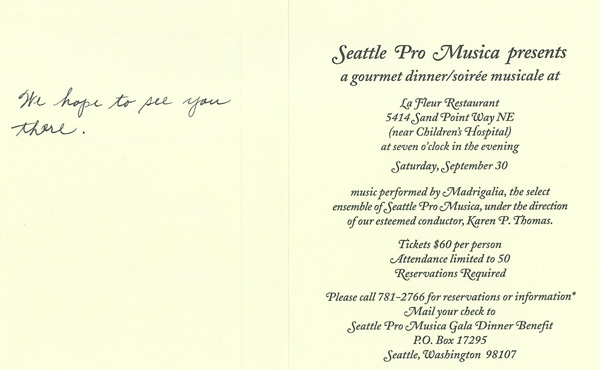 We hope to see you
there.
Seattle Pro Musica presents
a gourmet dinner/soirée musicale at
La Fleur Restaurant
5414 Sand Point Way NE
(near Children's Hospital)
at seven o'clock in the evening
Saturday, September 30
music performed by Madrigalia, the select
ensemble of Seattle Pro Musica, under the direction
of our esteemed conductor, Karen P. Thomas.
Tickets $60 per person
Attendance limited to 50
Reservations Required
Please call 781-2766 for reservations or information*
Mail your check to
Seattle Pro Musica Gala Dinner Benefit
P.O. Box 17295
Seattle, Washington 98107